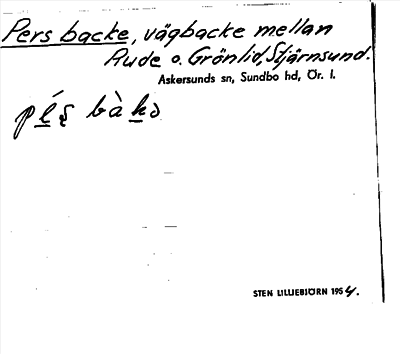 Pers backe, vägbacke mellan
Rude o. Grönlid, Stjärnsund.
Askersunds sn, Sundbo hd, Ör. l.
bà
STEN LILLIEBJÖRN 1954.